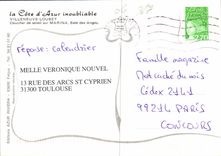 La Côte d'Azur inoubliable
VILLENEUVE LOUBET
Coucher de soleil sur MARINA, Baie des Anges
Réponse: calendrier
MELLE VERONIQUE NOUVEL
13 RUE DES ARCS ST CYPRIEN
31300 TOULOUSE
2,70
Famille magazine
Mot caché du mois
Cédex 2414
99214 PARIS
CONCOURS